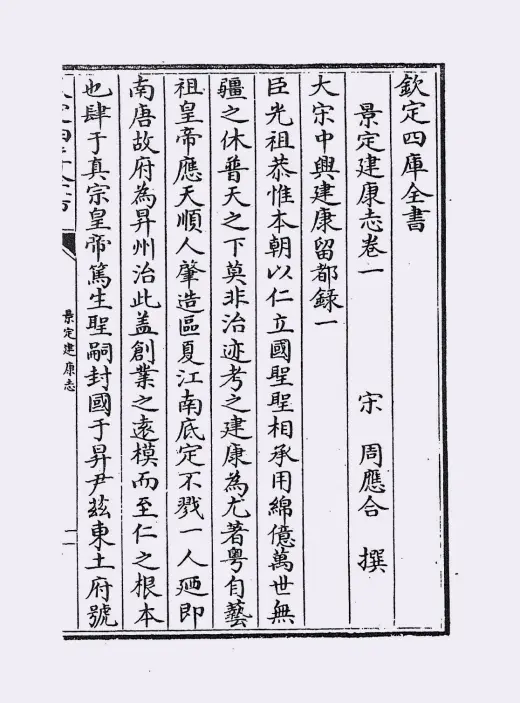 欽定四庫全書
景定建康志卷一
宋 周應合 撰
大宋中興建康留都録一
臣光祖恭惟本朝以仁立國聖聖相承用綿億萬世無
疆之休普天之下莫非治迹考之建康為尤著粤自藝
祖皇帝應天順人肇造區夏江南底定不戮一人廼即
南唐故府為昇州治此盖創業之逺模而至仁之根本
也肆于真宗皇帝篤生聖嗣封國于昇尹茲東土府號
景定建康志